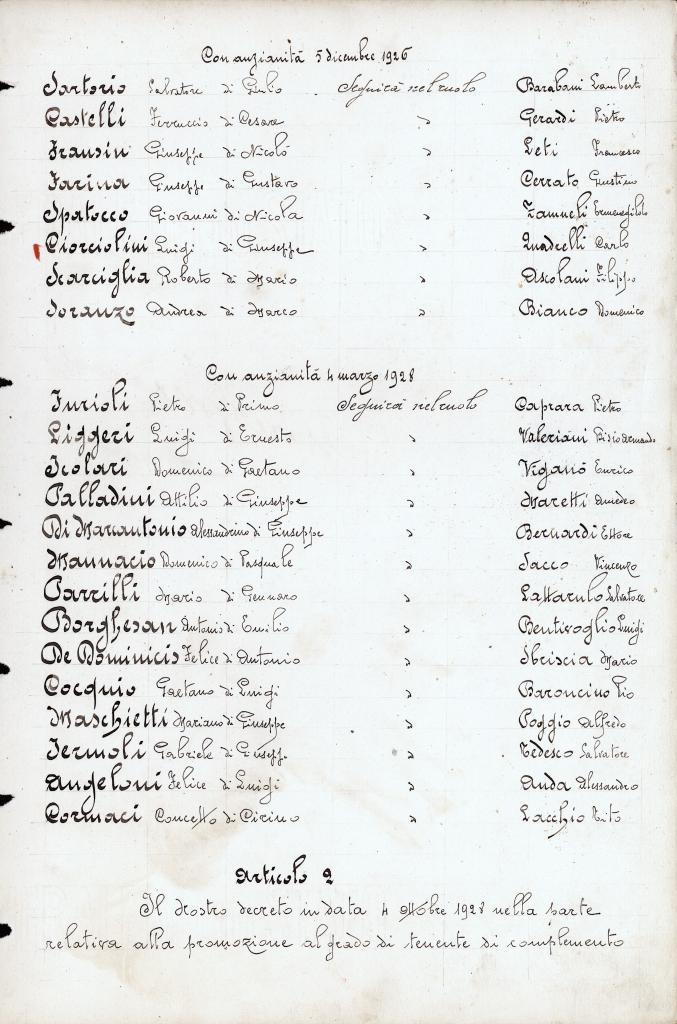 Con anzianità 5 dicembre 1926
Sartorio Salvatore di Giulio Seguirà nel ruolo Barabani Lamberto
Castelli Ferruccio di Cesare " Gerardi Pietro
Fransin Giuseppe di Nicolò " Leti Francesco
Farina Giuseppe di Gustavo " Cerrato Giustino
Spatocco Giovanni di Nicola " Zamueli Ermenegildo
Ciorciolini Luigi di Giuseppe " Quadrelli Carlo
Scarciglia Roberto di Mario " Ascolani Filippo
Soranzo Andrea di Marco " Bianco Domenico
Con anzianità 4 marzo 1928
Furioli Pietro di Primo Seguirà nel ruolo Caprara Pietro
Liggeri Luigi di Ernesto " Valeriani Armando
Scolari Domenico di Gaetano " Viganò Enrico
Palladini Attilio di Giuseppe " Maretti Amedeo
Di Marcantonio Alessandrino di Giuseppe " Bernardi Ettore
Mannacio Domenico di Pasquale " Sacco Vincenzo
Parrilli Mario di Gennaro " Lattarulo Salvatore
Borghesan Antonio di Emilio " Bentivoglio Luigi
De Dominicis Felice di Antonio " Sbriscia Mario
Cocquio Gaetano di Luigi " Baroncino Pio
Maschietti Mariano di Giuseppe " Poggio Alfredo
Iermoli Gabriele di Giuseppe " Tedesco Salvatore
Angeloni Felice di Luigi " Anda Alessandro
Cormaci Concetto di Cirino " Lacchio Tito
Articolo 2
Il Nostro decreto in data 4 ottobre 1928 nella parte
relativa alla promozione al grado di tenente di complemento